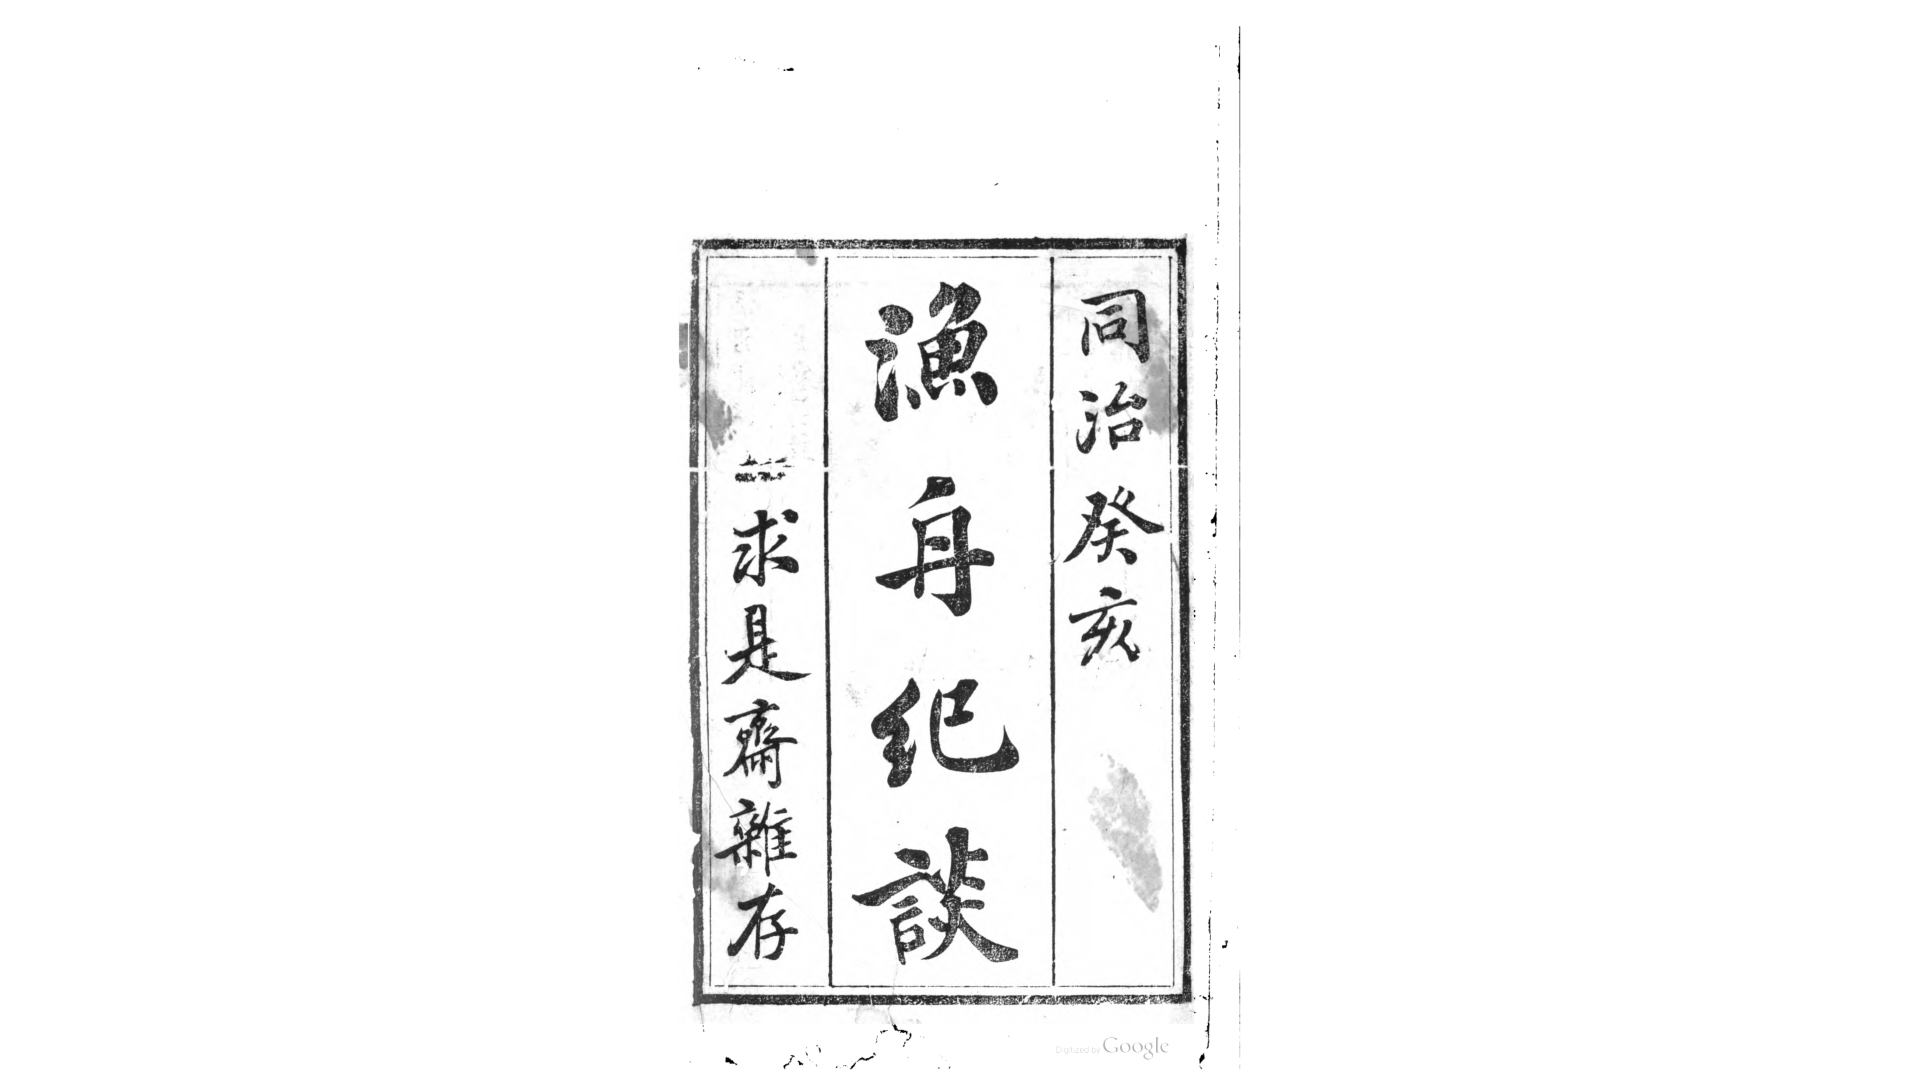 同治癸亥
漁舟紀談
求是齋雜存
Digitized by Google